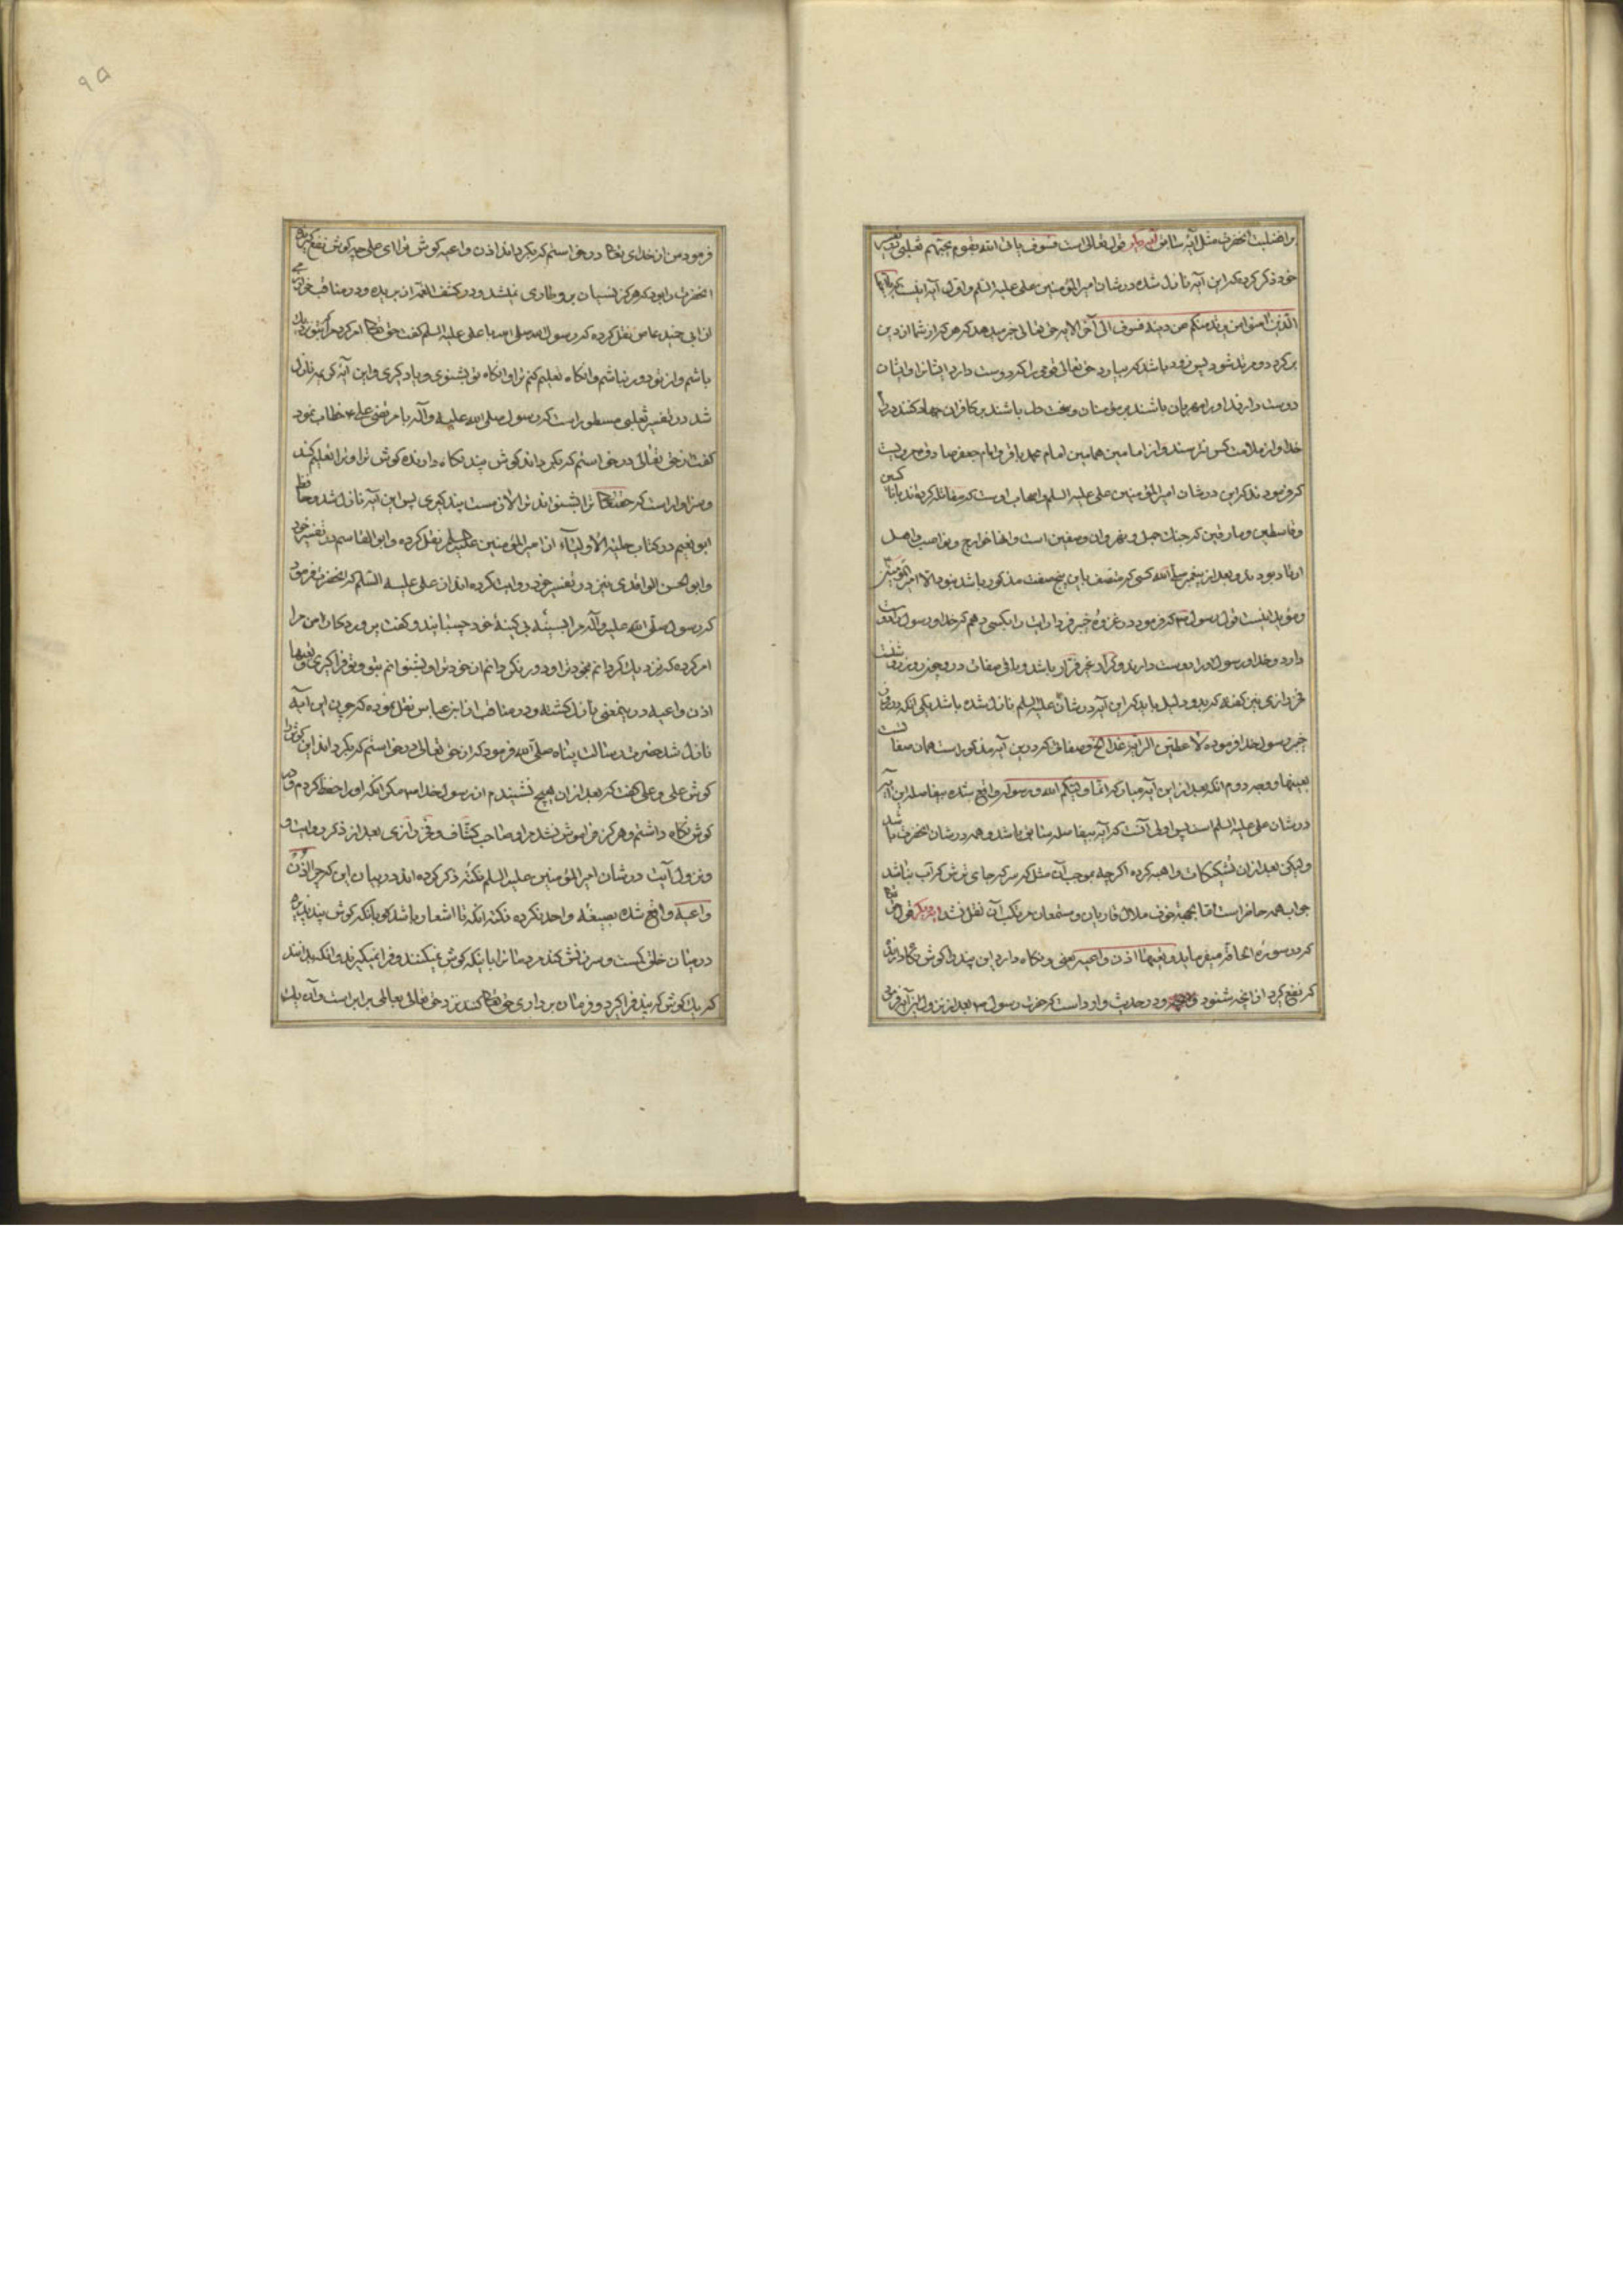 بر افضلیت انحضرت مثل ایهٔ سابق ایه دیکر قول تعالی است فسوف یاتی الله بقوم یحبّهم ثعلبی در تفسیر
خود ذکر کرده که این آیه نازل شده در شان امیر المؤمنین علی علیه السلم و اول آیه اینست یا ایها
الّذین امنوا من یرتد منکم عن دینه فسوف الی آخر الایه حق تعالی خبر میدهد که هر که از شما از دین
بر کردد و مرتد شود پس زود باشد که بیاورد حق تعالی قومی را که دوست دارد ایشانرا و ایشان
دوست دارند او را مهربان باشند بر مؤمنان و سخت دل باشند بر کافران جهاد کنند در راه
خدا و از ملامت کس نترسند و از امامین همامین امام محمد باقر و امام جعفر صادق مرویست
که فرمودند که این در شان امیر المؤمنین علی علیه السلم و اصحاب اوست که مقاتله کرده‌اند با ناکثین
و قاسطین و مارقین که جنک جمل و نهروان و صفین است و انها خوارج و نواصب و اهل
ارتداد بودند و بعد از پیغمبر صلی الله کسی که متصف باین پنج صفت مذکور باشد نبود الا امیر المؤمنین
و مؤید اینست قول رسول ص که فرمود در غزوهٔ خیبر فردا رایت را بکسی دهم که خدا و رسول را دوست
دارد و خدا و رسول او را دوست دارند و کرار غیر فرار باشد و باقی صفات در روز
فخر رازی نیز کفته که بدو دلیل باید که این آیه در شان علی علیه السلم نازل شده باشد یکی انکه در روز
خیبر رسول خدا فرموده لاعطین الرایه غدا الخ و صفاتی که در این آیه مذکور است همان صفات
بعینها و وجه دوم انکه بعد از این آیه مبارکه انّما ولیّکم الله و رسوله واقع شده بیفاصله این آیه
در شان علی علیه السلم است پس اولی آنست که آیه بیفاصله سابق باشد و همه در شان انحضرت باشد
ولیکن بعد از ان تشکیکات واهیه کرده اکرچه بموجب آن مثل که سرکه جای ترش کر آب نباشد
جواب همه حاضر است امّا بجهة خوف ملال قاریان و مستمعان مرتکب آن نقل نشد ایه دیکر قول حق تعالی
که در سوره الحاقه میفرماید و تعیها اذن واعیه یعنی و نکاه دارد این پند را کوش نکاه دارنده
که نفع کیرد از انچه شنود و در حدیث وارد است که حضرت رسول ص بعد از نزول این آیه فرمود
۹۵
فرمود من از خدای تعا درخواستم که بکرداند اذن واعیه کوش ترا ای علی چه کوش نفع کیرنده
انحضرت را بود که هرکز نسیان برو طاری نمیشد و در کشف الغمه از بریده و در مناقب خوارزمی
از ابی عاص نقل کرده که رسول الله صلی الله با علی علیه السلم کفت حق تعا امر کرد مرا که بتو نزدیک
باشم و از تو دور نباشم و انکاه تعلیم کنم ترا و انکاه تو بشنوی و یاد کیری و این آیهٔ کریمه نازل
شد در تفسیر ثعلبی مسطور است که رسول صلی الله علیه و آله با مرتضی علی ع خطاب نمود
کفت از حق تعالی درخواستم که بکرداند کوش پند نکاه دارنده کوش ترا و ترا تعلیم کند
و سزاوار است که حقتعا ترا بشنواند ترا لازمست پند کیری پس این آیه نازل شد و حافظ
ابو نعیم در کتاب حلیة الاولیاء از امیر المؤمنین علیه السلم نقل کرده و ابو القاسم در تفسیر خود
و ابو الحسن الواقدی نیز در تفسیر خود روایت کرده اند از علی علیه السّلم که انحضرت فرمود
که رسول صلی الله علیه و آله مرا بسینهٔ بی کینهٔ خود چسبانید و کفت پروردکار من مرا
امر کرده که نزدیک کردانم بخود ترا و دور نکردانم از خود ترا و بشنوانم بتو و تو فرا کیری و تعیها
اذن واعیه در ینمعنی نازل کشته و در مناقب از ابن عباس نقل نموده که چون این آیه
نازل شد حضرت رسالت پناه صلّی الله فرمود که از حق تعالی درخواستم که بکرداند این کوش را
کوش علی و علی کفت که بعد از ان هیچ نشنیدم از رسول خدا ص مکر انکه او را حفظ کردم و در
کوش نکاه داشتم و هرکز فراموش نشد مرا و صاحب کشّاف و فخر رازی بعد از ذکر روایت و
و نزول آیت در شان امیر المؤمنین علیه السلم نکته ذکر کرده اند در بیان این که چرا اذن
واعیه واقع شده بصیغه واحد نکره نکته انکه تا اشعار باشد کو بانکه کوش پند پذیر
در میان خلق کمست و سرزنش کند مردمانرا باینکه کوش نمیکنند و فرا نمیکیرند و انکه بدانند
که یک کوش که پند فرا کیرد و فرمان برداری حق تعا کند نزد حق تعالی بعالمی برابر است و آن یک